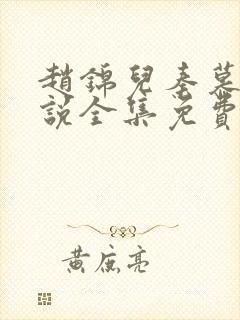 趙錦兒秦慕
說全集免費
黃庭亮